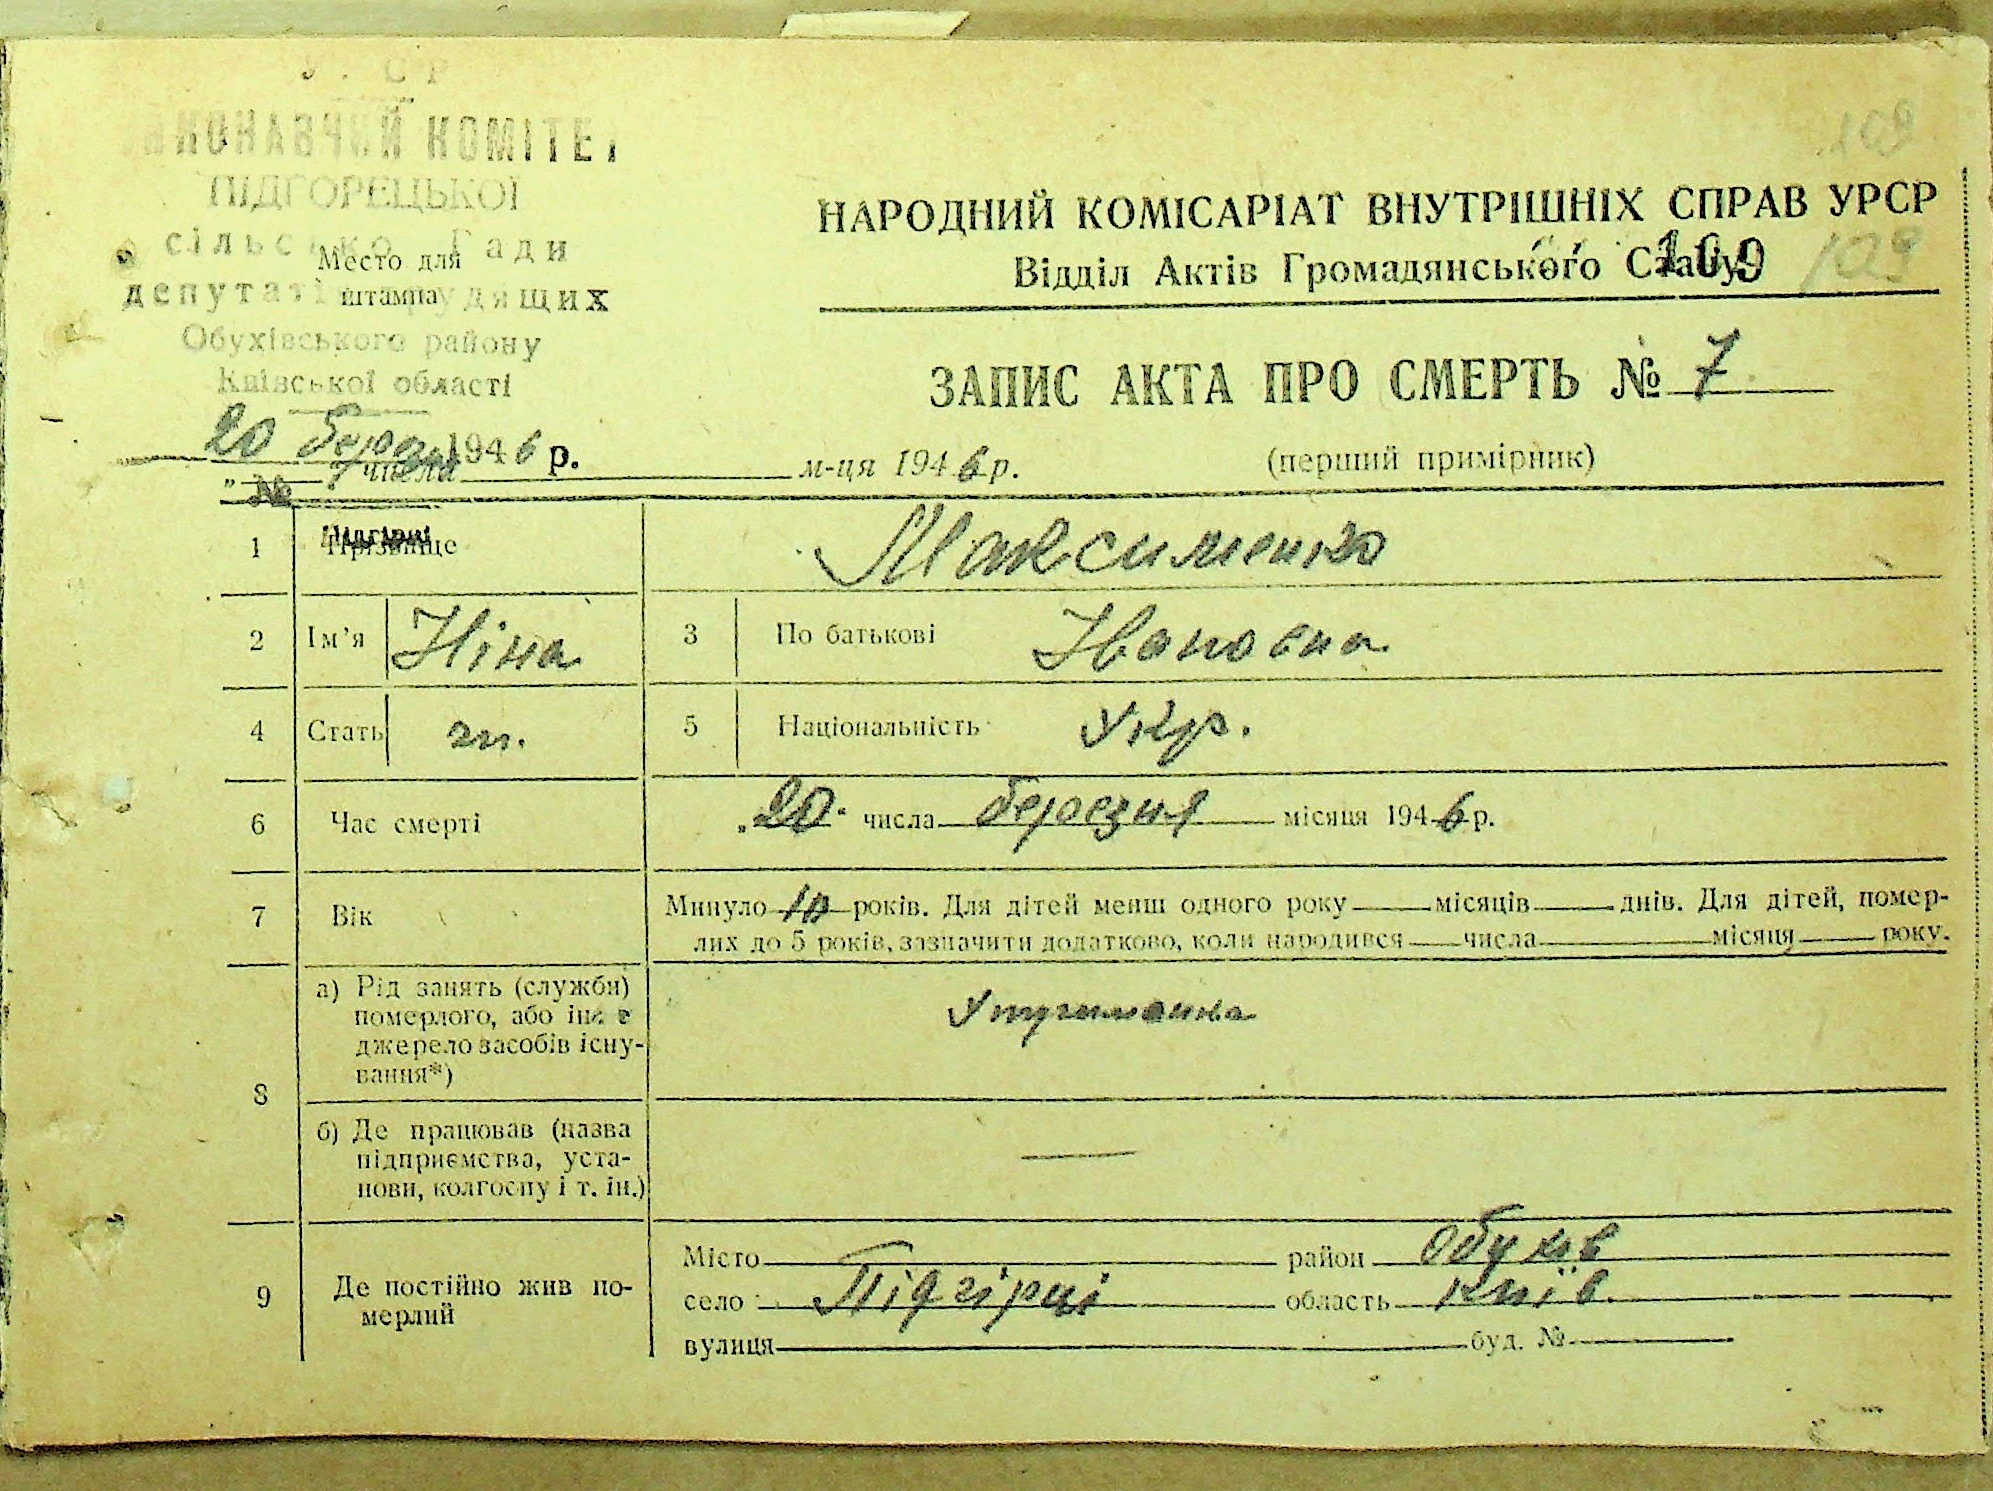 УРСР
ВИКОНАВЧИЙ КОМІТЕТ
ПІДГОРЕЦЬКОЇ
сільської Ради
депутатів трудящих
Обухівського району
Київської області
Место для
штампа
20 берез. 1946 р.
№
Підгірці
109
НАРОДНИЙ КОМІСАРІАТ ВНУТРІШНІХ СПРАВ УРСР
Відділ Актів Громадянського Стану
109 109
ЗАПИС АКТА ПРО СМЕРТЬ № 7
„ числа м-ця 1946 р. (перший примірник)
1 Прізвище Максименко
2 Ім’я Ніна 3 По батькові Івановна
4 Стать ж. 5 Національність Укр.
6 Час смерті „20“ числа березня місяця 1946 р.
7 Вік Минуло 10 років. Для дітей менш одного року місяців днів. Для дітей, помер-
лих до 5 років, зазначити додатково, коли народився числа місяця року.
8 а) Рід занять (служби)
померлого, або інше
джерело засобів існу-
вання*)
б) Де працював (назва
підприємства, уста-
нови, колгоспу і т. ін.)
—
9 Де постійно жив по-
мерлий
Місто район Обухів
село Підгірці область Київ.
вулиця буд. №